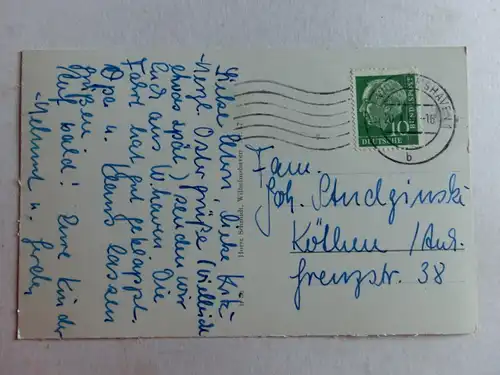 Liebe Eltern, liebe
Herzl. Ostergrüße (vielleicht
etwas spät) senden wir
Euch aus W.haven. Die
Fahrt hat gut geklappt.
Opa u. Hans lassen
grüßen.
Auf bald! Eure Kinder
Helmut u.
Horst Schmidt, Wilhelmshaven
HAVEN
-18
b
10
BUNDESPOST
DEUTSCHE
Fam.
Joh. Studzinski
Köthen/Anh.
Grenzstr. 38